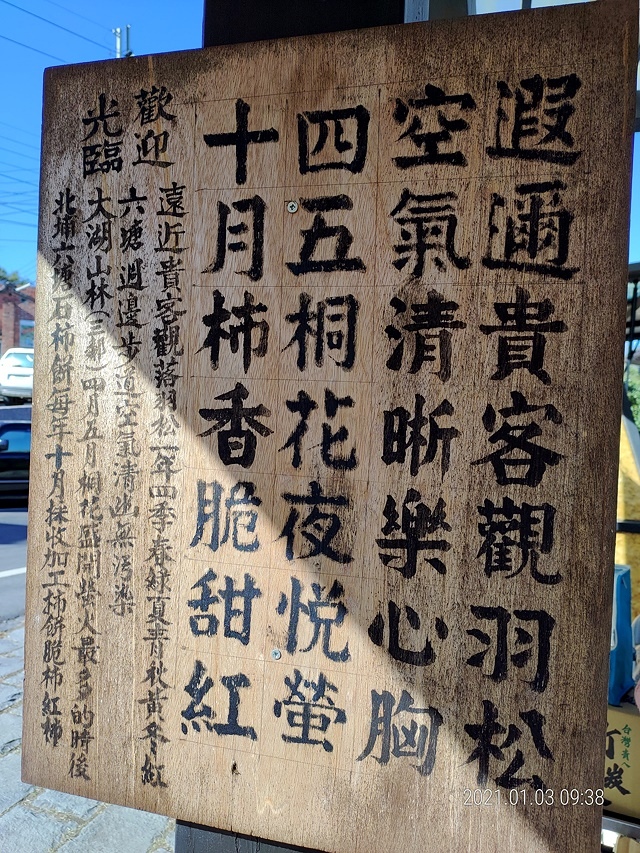 遐邇貴客觀羽松
空氣清晰樂心胸
四五桐花夜悦螢
十月柿香脆甜紅
歡迎
光臨
遠近貴客觀落羽松一年四季春綠夏青秋黃冬紅
六塘週邊步道空氣清幽無污染
大湖山林(三鄉)四月五月桐花盛開螢火最多的時後
北埔六塘石柿餅每年十月採收加工柿餅脆柿紅柿
台灣青八
竹炭
2021.01.03 09:38